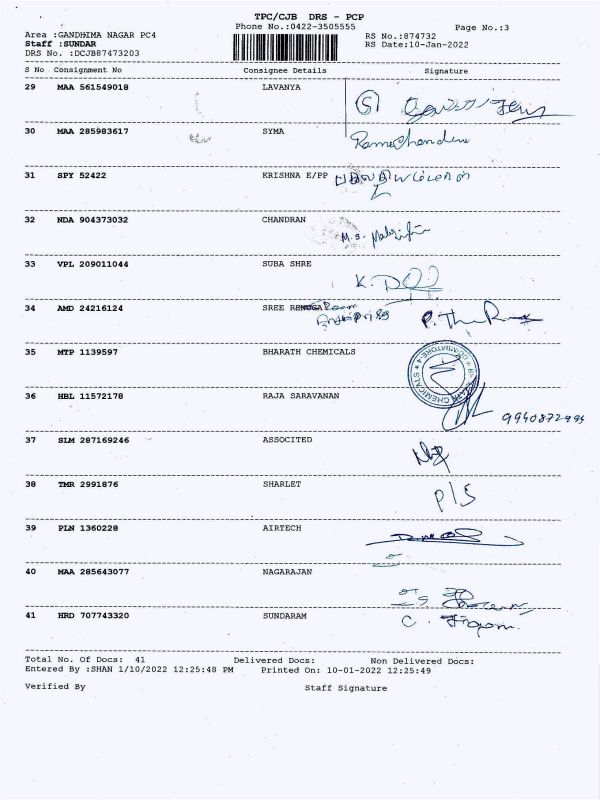 TPC/CJB DRS - PCP
Phone No.:0422-3505555
Page No.:3
Area :GANDHIMA NAGAR PC4
RS No.:874732
Staff :SUNDAR
RS Date:10-Jan-2022
DRS No. :DCJB87473203
S No Consignment No Consignee Details Signature
29 MAA 561549018 LAVANYA
30 MAA 285983617 SYMA
Ramachandran
31 SPY 52422 KRISHNA E/PP
32 NDA 904373032 CHANDRAN
M.S.
33 VPL 209011044 SUBA SHRE
34 AMD 24216124 SREE RENUGA
35 MTP 1139597 BHARATH CHEMICALS
36 HBL 11572178 RAJA SARAVANAN
37 SLM 287169246 ASSOCITED
38 TMR 2991876 SHARLET
39 PLN 1360228 AIRTECH
40 MAA 285643077 NAGARAJAN
41 HRD 707743320 SUNDARAM
Total No. Of Docs: 41 Delivered Docs: Non Delivered Docs:
Entered By :SHAN 1/10/2022 12:25:48 PM Printed On: 10-01-2022 12:25:49
Verified By Staff Signature